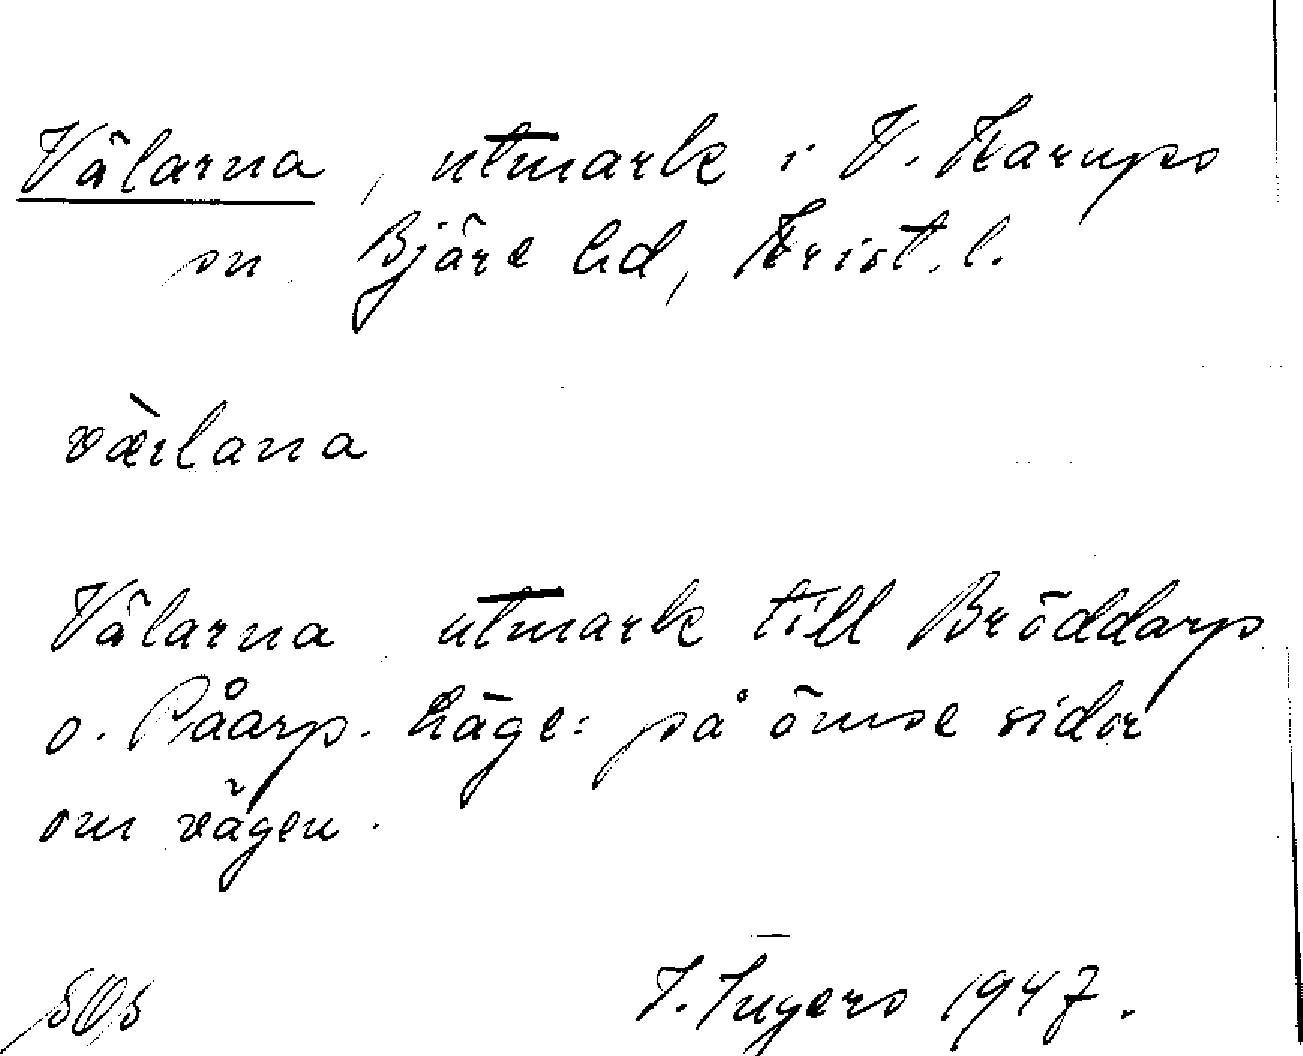 Välarna, utmark i V. Karups
sn. Bjäre hd, Krist. l.
væ̀ilana
Välarna utmark till Bröddarp
o. Påarp. Läge: på ömse sidor
om vägen.
I. Ingers 1947.